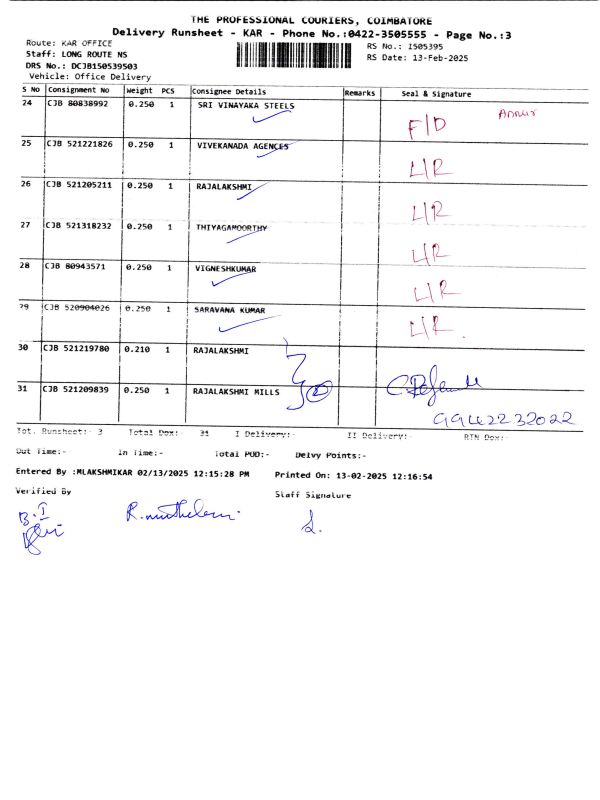 THE PROFESSIONAL COURIERS, COIMBATORE
Delivery Runsheet - KAR - Phone No.:0422-3505555 - Page No.:3
Route: KAR OFFICE
RS No.: I505395
Staff: LONG ROUTE NS
RS Date: 13-Feb-2025
DRS No.: DCJB150539503
Vehicle: Office Delivery
S No Consignment No Weight PCS Consignee Details Remarks Seal & Signature
24 CJB 80838992 0.250 1 SRI VINAYAKA STEELS F/D Annur
25 CJB 521221826 0.250 1 VIVEKANADA AGENCES L/R
26 CJB 521205211 0.250 1 RAJALAKSHMI L/R
27 CJB 521318232 0.250 1 THIYAGAMOORTHY L/R
28 CJB 80943571 0.250 1 VIGNESHKUMAR L/R
29 CJB 520904026 0.250 1 SARAVANA KUMAR L/R
30 CJB 521219780 0.210 1 RAJALAKSHMI
31 CJB 521209839 0.250 1 RAJALAKSHMI MILLS 2
9942232022
Tot. Runsheet:- 3 Total Dox:- 31 I Delivery:- II Delivery:- RTN Dox:-
Out Time:- In Time:- Total POD:- Delvy Points:-
Entered By :MLAKSHMIKAR 02/13/2025 12:15:28 PM Printed On: 13-02-2025 12:16:54
Verified By Staff Signature